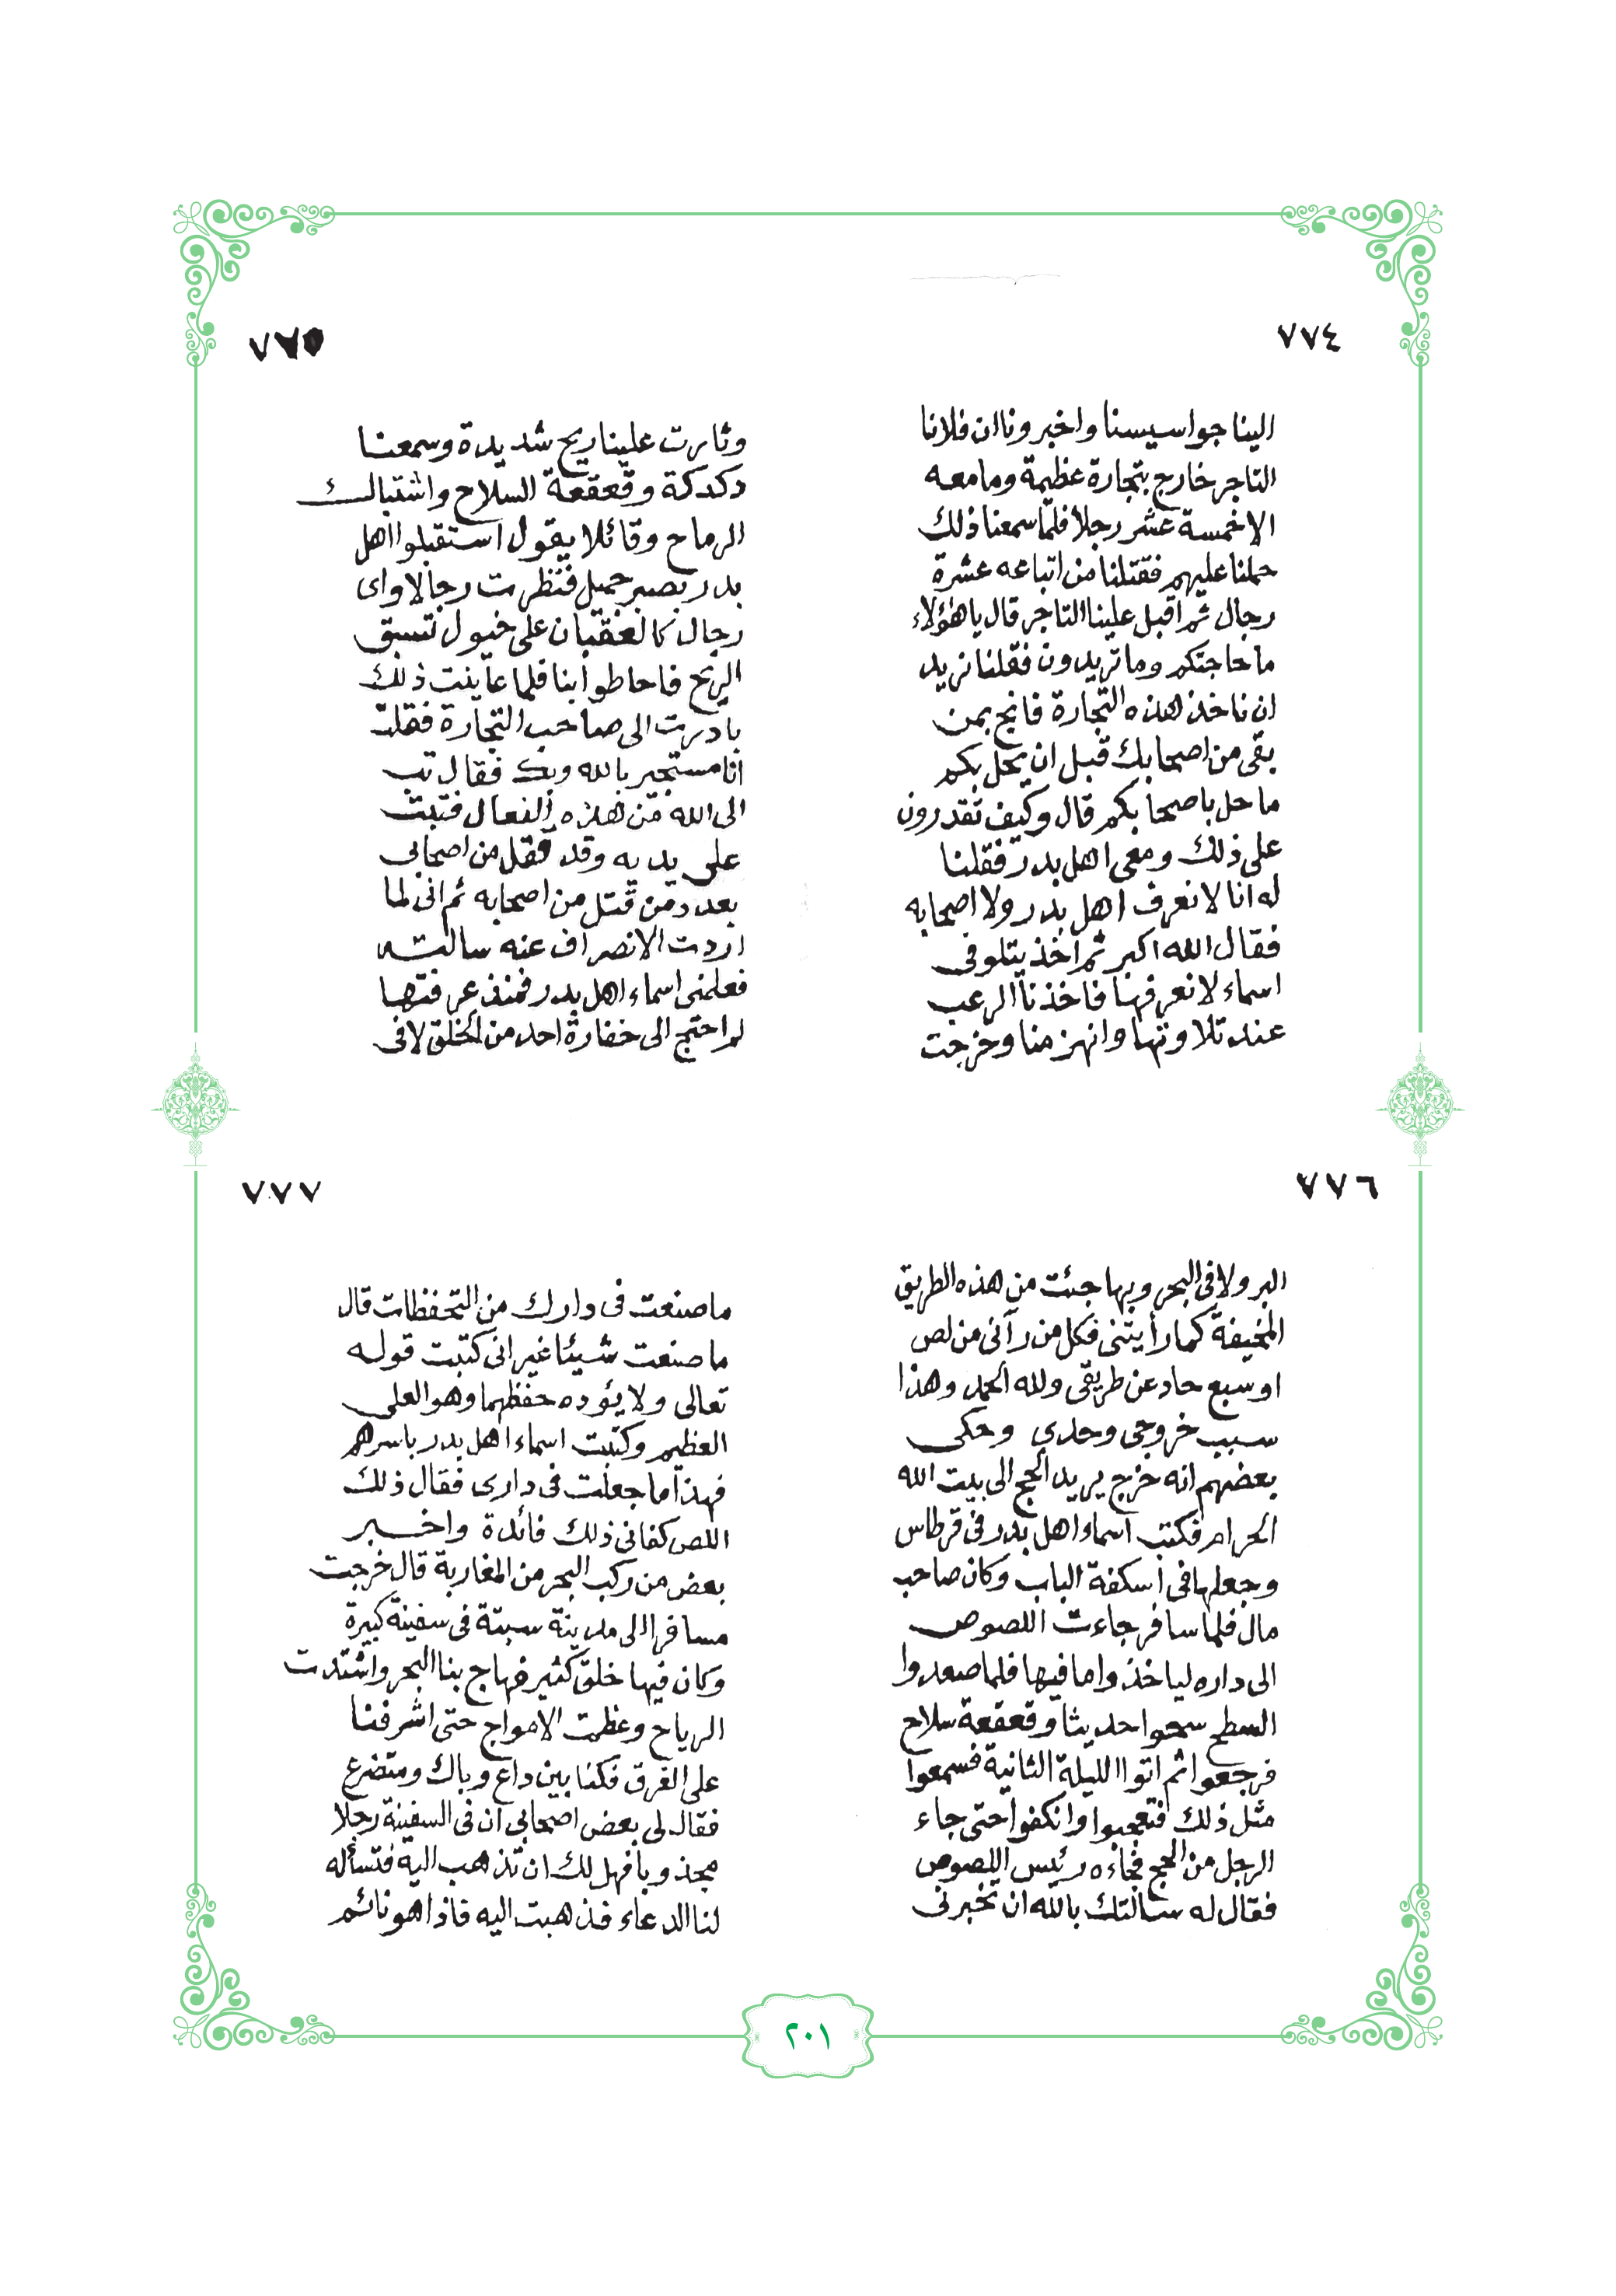 ٧٧٤
الينا جواسيسنا واخبرونا ان فلانا
التاجر خارج بتجارة عظيمة وما معه
الا خمسة عشر رجلا فلما سمعنا ذلك
حملنا عليهم فقتلنا من اتباعه عشرة
رجال ثم اقبل علينا التاجر قال يا هؤلاء
ما حاجتكم وما تريدون فقلنا نريد
ان ناخذ هذه التجارة فانج بمن
بقى من اصحابك قبل ان يحل بكم
ما حل باصحابكم قال وكيف تقدرون
على ذلك ومعى اهل بدر فقلنا
له انا لا نعرف اهل بدر ولا اصحابه
فقال الله اكبر ثم اخذ يتلو فى
اسماء لا نعرفها فاخذنا الرعب
عند تلاوتها وانهزمنا وخرجت
٧٧٥
وثارت علينا ريح شديدة وسمعنا
دكدكة وقعقعة السلاح واشتباك
الرماح وقائلا يقول استقبلوا اهل
بدر بصبر جميل فنظرت رجالا واى
رجال كالعقبان على خيول تسبق
الريح فاحاطوا بنا فلما عاينت ذلك
بادرت الى صاحب التجارة فقلت
انا مستجير بالله وبك فقال تب
الى الله من هذه الفعال فتبت
على يديه وقد قتل من اصحابى
بعدد من قتل من اصحابه ثم انى لما
اردت الانصراف عنه سالته
فعلمنى اسماء اهل بدر فمنذ عرفتها
لم احتج الى خفارة احد من الخلق لا فى
٧٧٦
البر ولا فى البحر وبها جئت من هذه الطريق
المخيفة كما رأيتنى فكل من رآنى من لص
او سبع حاد عن طريقى ولله الحمد وهذا
سبب خروجى وحدى وحكى
بعضهم انه خرج يريد الحج الى بيت الله
الحرام فكتب اسماء اهل بدر فى قرطاس
وجعلها فى اسكفة الباب وكان صاحب
مال فلما سافر جاءت اللصوص
الى داره لياخذوا ما فيها فلما صعدوا
السطح سمعوا حديثا وقعقعة سلاح
فرجعوا ثم اتوا الليلة الثانية فسمعوا
مثل ذلك فتعجبوا وانكفوا حتى جاء
الرجل من الحج فجاءه رئيس اللصوص
فقال له سالتك بالله ان تخبرنى
٧٧٧
ما صنعت فى دارك من التحفظات قال
ما صنعت شيئا غير انى كتبت قوله
تعالى ولا يؤده حفظهما وهو العلى
العظيم وكتبت اسماء اهل بدر باسرهم
فهذا ما جعلت فى دارى فقال ذلك
اللص كفانى ذلك فائدة واخبر
بعض من ركب البحر من المغاربة قال خرجت
مسافرا الى مدينة سبتة فى سفينة كبيرة
وكان فيها خلق كثير فهاج بنا البحر واشتدت
الرياح وعظمت الامواج حتى اشرفنا
على الغرق فكنا بين داع وباك ومتضرع
فقال لى بعض اصحابى ان فى السفينة رجلا
مجذوبا فهل لك ان تذهب اليه فتسأله
لنا الدعاء فذهبت اليه فاذا هو نائم
٢٠١